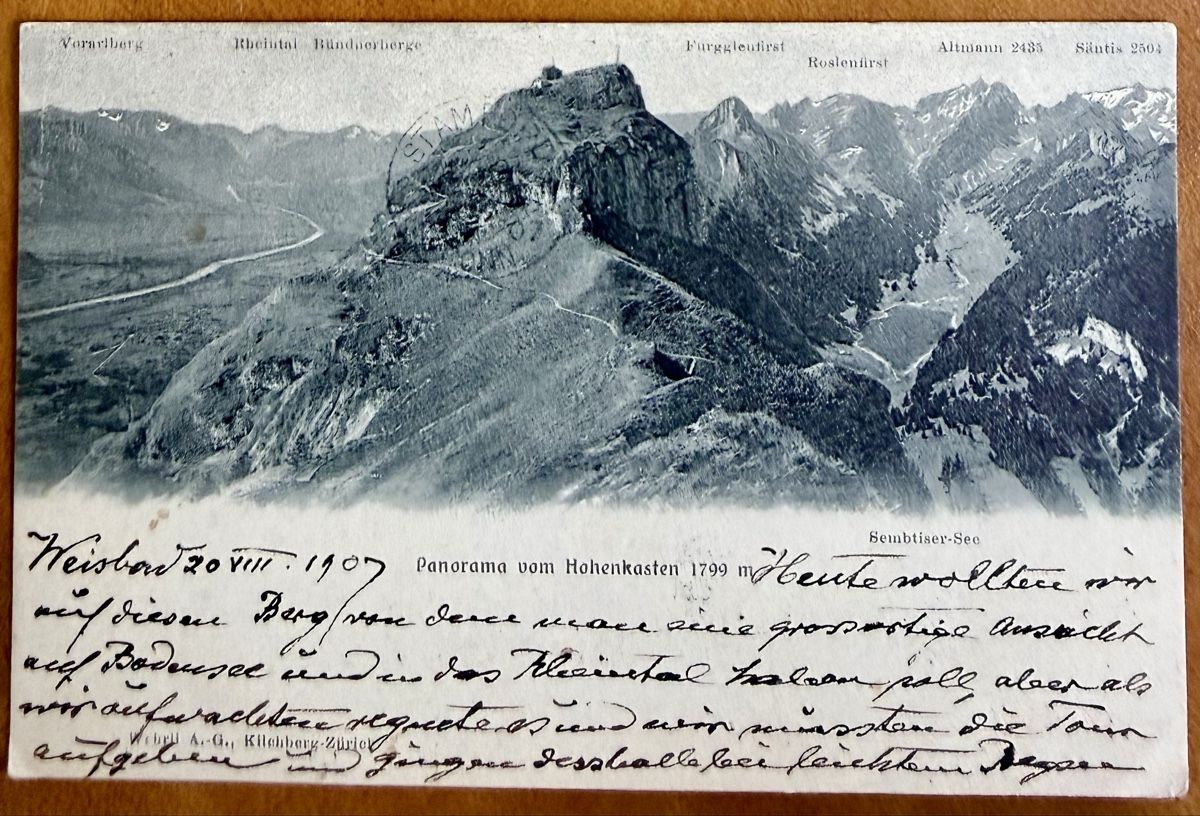 Vorarlberg Rheintal Bündnerberge Furgglenfirst Altmann 2435 Säntis 2504
Roslenfirst
STAM
Sembtiser-See
Panorama vom Hohenkasten 1799 m
Weisbad 20 VIII. 1907 Heute wollten wir
auf diesen Berg, von dem man eine grossartige Aussicht
auf Bodensee und in das Rheintal haben soll, aber als
wir aufwachten regnete es und wir mussten die Tour
Wehrli A.-G., Kilchberg-Zürich
aufgeben und gingen desshalb bei leichtem Regen